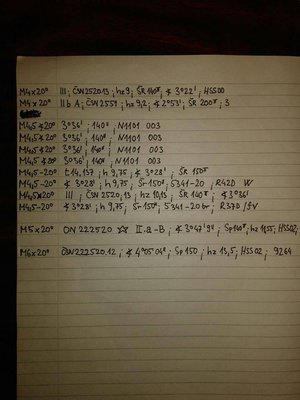 M4x20° III ; ČSN 2520.13 ; hz 9 ; ŠR 140° ; ∢ 3°22' ; HSS00
M4x20° II b A ; ČSN 2551 ; hz 9,2 ; ∢ 2°53' ; ŠR 200° ; 3
M4,5∢20° 3°36' ; 140° ; N1101 003
M4,5∢20° 3°36' ; 140° ; N1101 003
M4,5∢20° 3°36' ; 140° ; N1101 003
M4,5∢20° 3°36' ; 140° ; N1101 003
M4,5-20° t 14,137 ; h 9,75 ; ∢ 3°28' ; ŠR 150°
M4,5-20° ∢ 3°28' ; h 9,75 ; Šr 150° ; 5341-20 R42D W
M4,5x20° III ; ČSN 2520,13 ; hz 10,13 ; ŠR 140° ; ∢ 3°36'
M4,5-20° ∢ 3°28' ; h 9,75 ; Šr 150° ; 5341-20 br ; R37D /
M5x20° ON 222520 ☆ II.a-B ; ∢ 3°47'9" ; Sp 140° ; hz 11,55 ; HSS02 ;
M6x20° ČSN 222520.12 ; ∢ 4°05'04" ; Sp 150 ; hz 13,5 ; HSS02 ; 9264